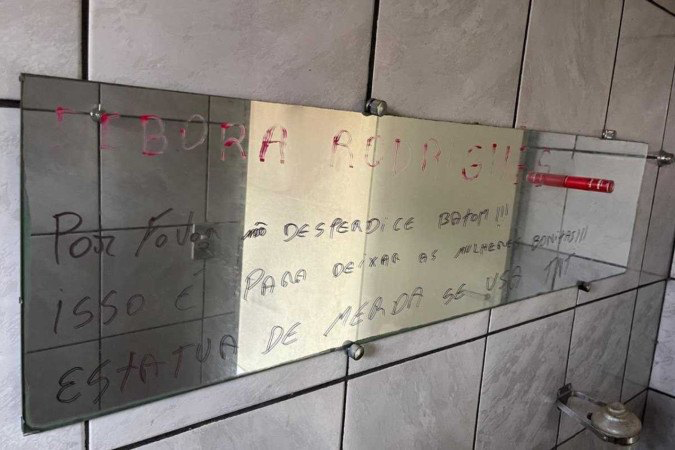 DEBORA RODRIGUES
POR FAVOR NÃO DESPERDICE BATOM!!!
ISSO É PARA DEIXAR AS MULHERES BONITAS!!!
ESTATUA DE MERDA SE USA TNT